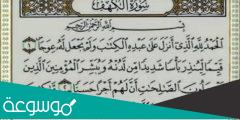 سورة الكهف
بسم الله الرحمن الرحيم
الحمد لله الذي أنزل على عبده الكتب ولم يجعل له عوجا ١
قيما لينذر بأسا شديدا من لدنه ويبشر المؤمنين الذين
الصلحت أن لهم أجرا حسنا
موسوعة